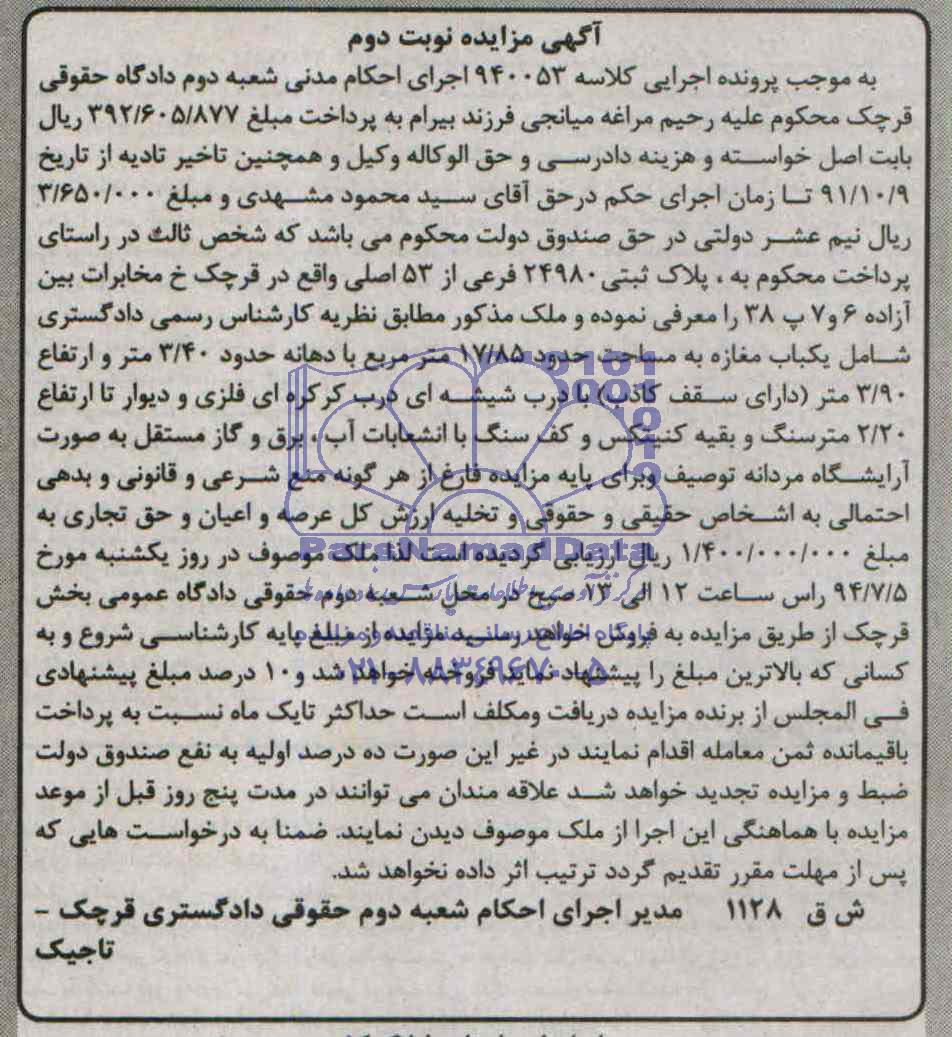 آگهی مزایده نوبت دوم
به موجب پرونده اجرایی کلاسه ۹۴۰۰۵۳ اجرای احکام مدنی شعبه دوم دادگاه حقوقی
قرچک محکوم علیه رحیم مراغه میانجی فرزند بیرام به پرداخت مبلغ ۳۹۲/۶۰۵/۸۷۷ ریال
بابت اصل خواسته و هزینه دادرسی و حق الوکاله وکیل و همچنین تاخیر تادیه از تاریخ
۹۱/۱۰/۹ تا زمان اجرای حکم درحق آقای سید محمود مشهدی و مبلغ ۳/۶۵۰/۰۰۰
ریال نیم عشر دولتی در حق صندوق دولت محکوم می باشد که شخص ثالث در راستای
پرداخت محکوم به ، پلاک ثبتی ۲۴۹۸۰ فرعی از ۵۳ اصلی واقع در قرچک خ مخابرات بین
آزاده ۶ و۷ پ ۳۸ را معرفی نموده و ملک مذکور مطابق نظریه کارشناس رسمی دادگستری
شامل یکباب مغازه به مساحت حدود ۱۷/۸۵ متر مربع با دهانه حدود ۳/۴۰ متر و ارتفاع
۳/۹۰ متر (دارای سقف کاذب) با درب شیشه ای درب کرکره ای فلزی و دیوار تا ارتفاع
۲/۲۰ مترسنگ و بقیه کنیتکس و کف سنگ با انشعابات آب ، برق و گاز مستقل به صورت
آرایشگاه مردانه توصیف وبرای پایه مزایده فارغ از هر گونه منع شرعی و قانونی و بدهی
احتمالی به اشخاص حقیقی و حقوقی و تخلیه ارزش کل عرصه و اعیان و حق تجاری به
مبلغ ۱/۴۰۰/۰۰۰/۰۰۰ ریال ارزیابی گردیده است لذا ملک موصوف در روز یکشنبه مورخ
ParsNamadData
۹۴/۷/۵ راس ساعت ۱۲ الی ۱۳ صبح در محل شعبه دوم حقوقی دادگاه عمومی بخش
قرچک از طریق مزایده به فروش خواهد رسید مزایده از مبلغ پایه کارشناسی شروع و به
کسانی که بالاترین مبلغ را پیشنهاد نماید فروخته خواهد شد و۱۰ درصد مبلغ پیشنهادی
۰۲۱-۸۸۳۴۹۶۷۰-۵
فی المجلس از برنده مزایده دریافت ومکلف است حداکثر تایک ماه نسبت به پرداخت
باقیمانده ثمن معامله اقدام نمایند در غیر این صورت ده درصد اولیه به نفع صندوق دولت
ضبط و مزایده تجدید خواهد شد علاقه مندان می توانند در مدت پنج روز قبل از موعد
مزایده با هماهنگی این اجرا از ملک موصوف دیدن نمایند. ضمنا به درخواست هایی که
پس از مهلت مقرر تقدیم گردد ترتیب اثر داده نخواهد شد.
ش ق ۱۱۲۸ مدیر اجرای احکام شعبه دوم حقوقی دادگستری قرچک –
تاجیک